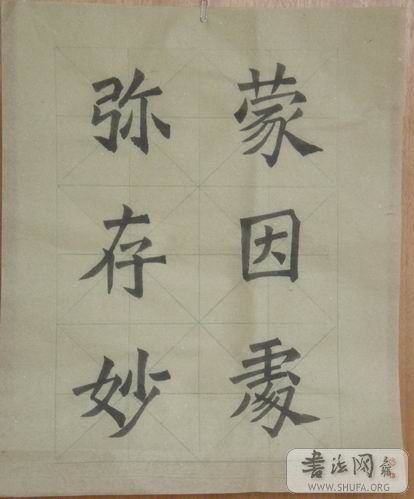 蒙因處
弥存妙
書法网
WWW.SHUFA.ORG